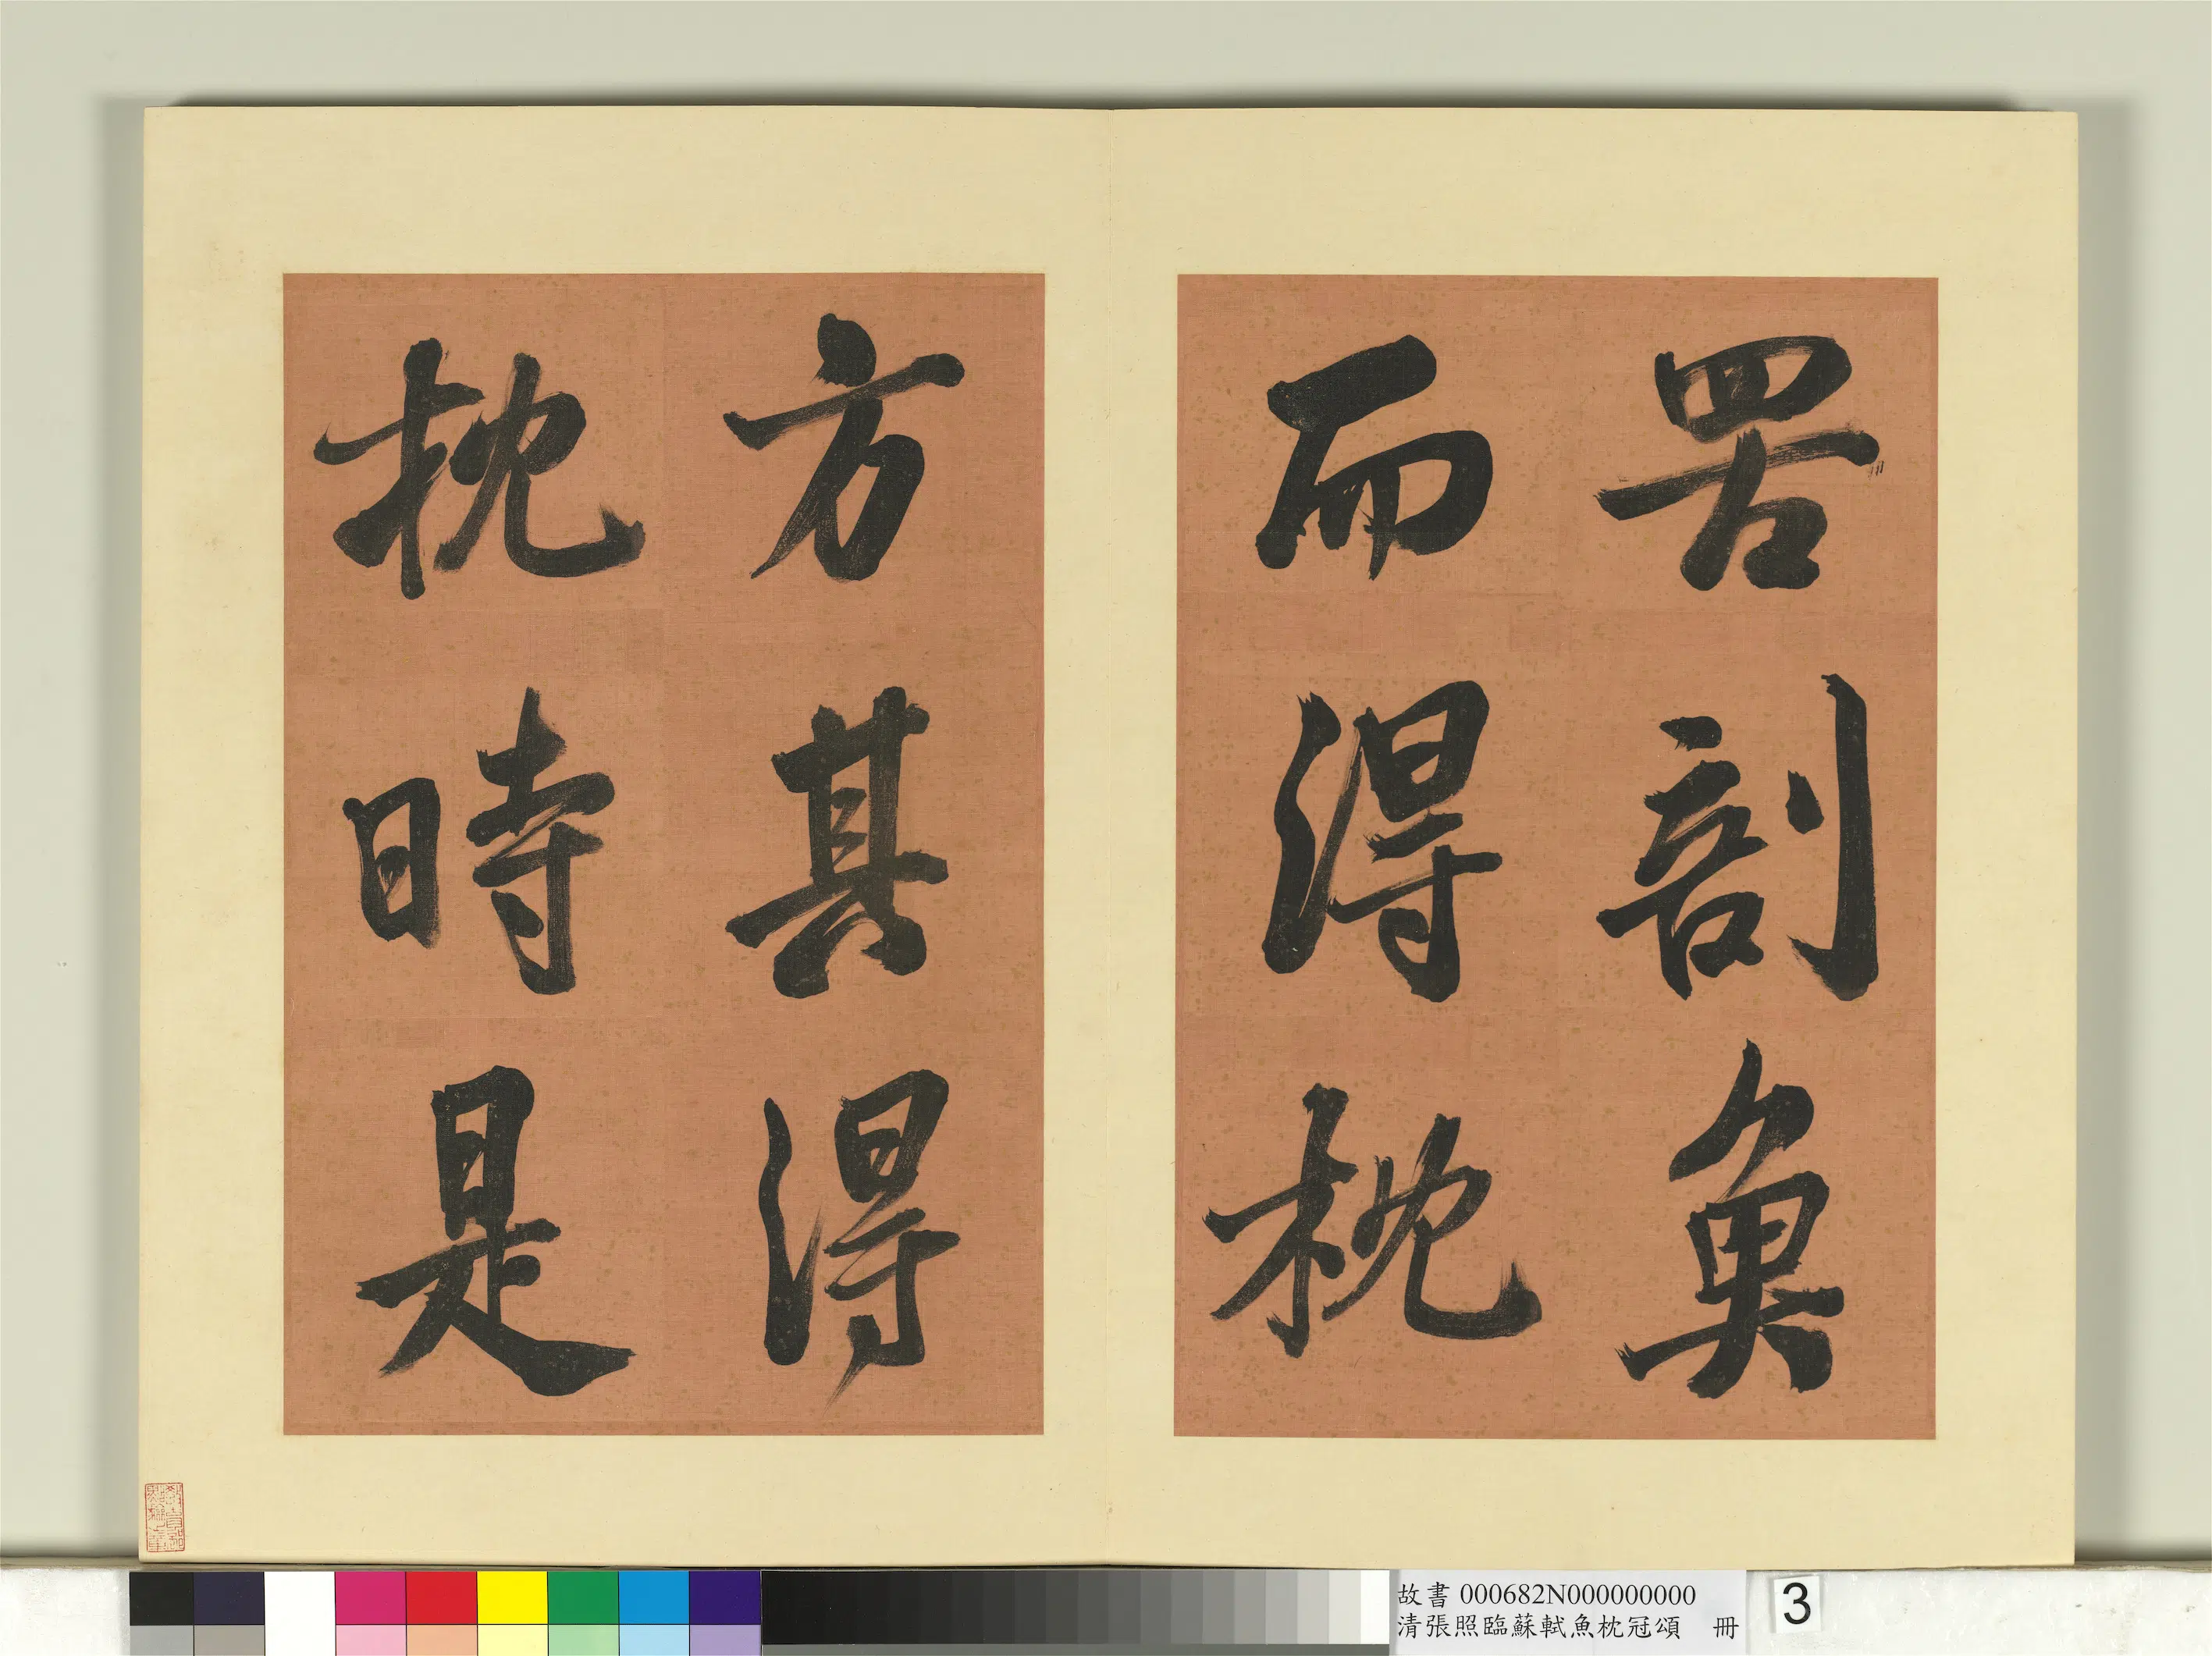 罟剖魚
而得枕
方其得
枕時是
故書 000682N000000000
清張照臨蘇軾魚枕冠頌 冊
3